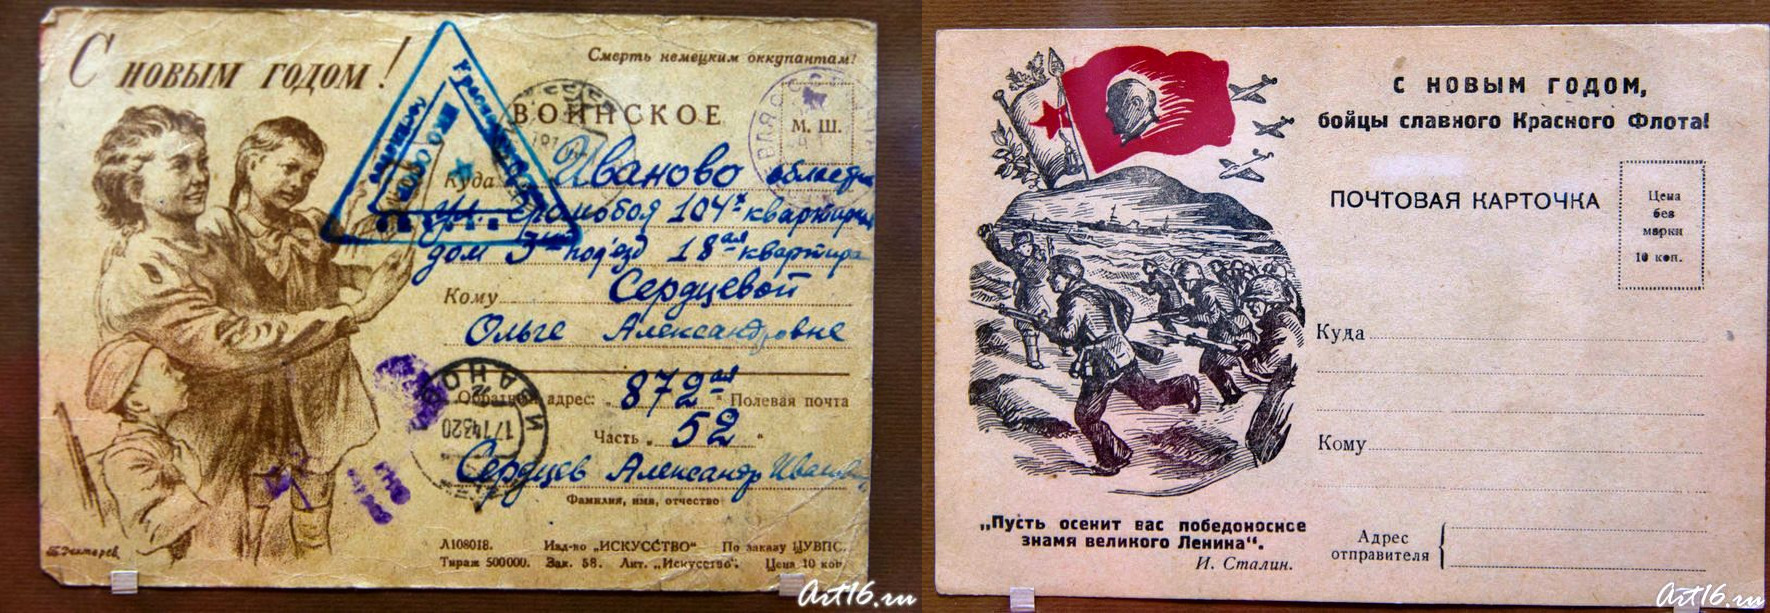 С НОВЫМ ГОДОМ!
Смерть немецким оккупантам!
ВОИНСКОЕ
М. Ш.
Куда Иваново области
ул. Громобоя 104й квартира
дом 3й под'езд 18ая квартира
Кому Сердцевой
Ольге Александровне
Обратный адрес: „872ая“ Полевая почта
Часть „52“
Сердцев Александр
Фамилия, имя, отчество
А108018. Изд-во „ИСКУССТВО“ По заказу ЦУВПС.
Тираж 500000. Зак. 58. Лит. „Искусство“. Цена 10 коп.
Art16.ru
С НОВЫМ ГОДОМ,
бойцы славного Красного Флота!
ПОЧТОВАЯ КАРТОЧКА
Цена
без
марки
10 коп.
Куда
Кому
„Пусть осенит вас победоносное
знамя великого Ленина“.
И. Сталин.
Адрес
отправителя
Art16.ru